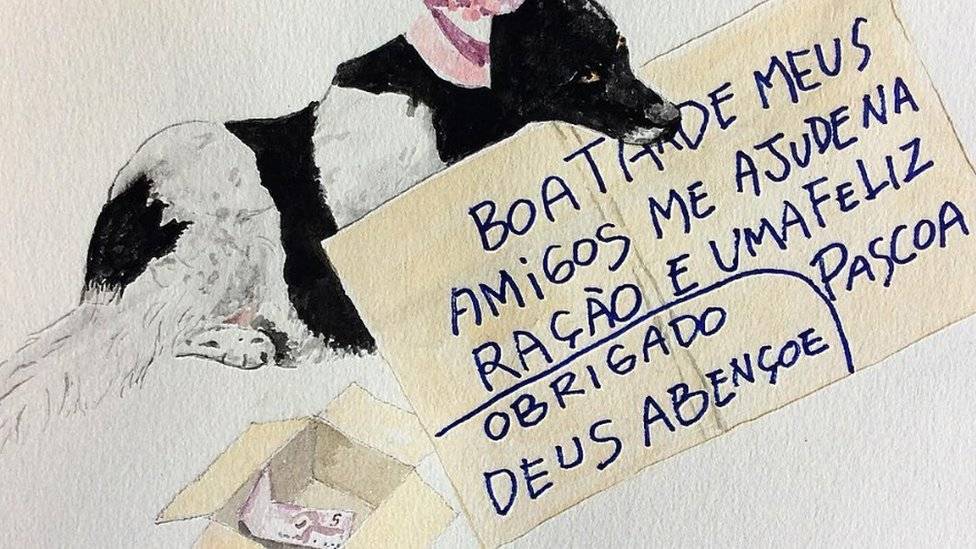 BOA TARDE MEUS
AMIGOS ME AJUDE NA
RAÇÃO E UMA FELIZ
PASCOA
OBRIGADO
DEUS ABENÇOE
5